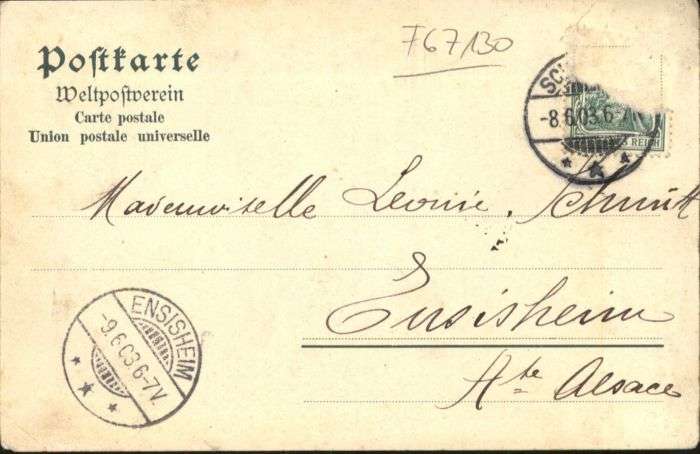 Postkarte
Weltpostverein
Carte postale
Union postale universelle
F67130
SC
-8.6.03.6-7
REICH
Mademoiselle Leonie Schmitt
Ensisheim
Hte Alsace
ENSISHEIM
-9.6.03.6-7V.